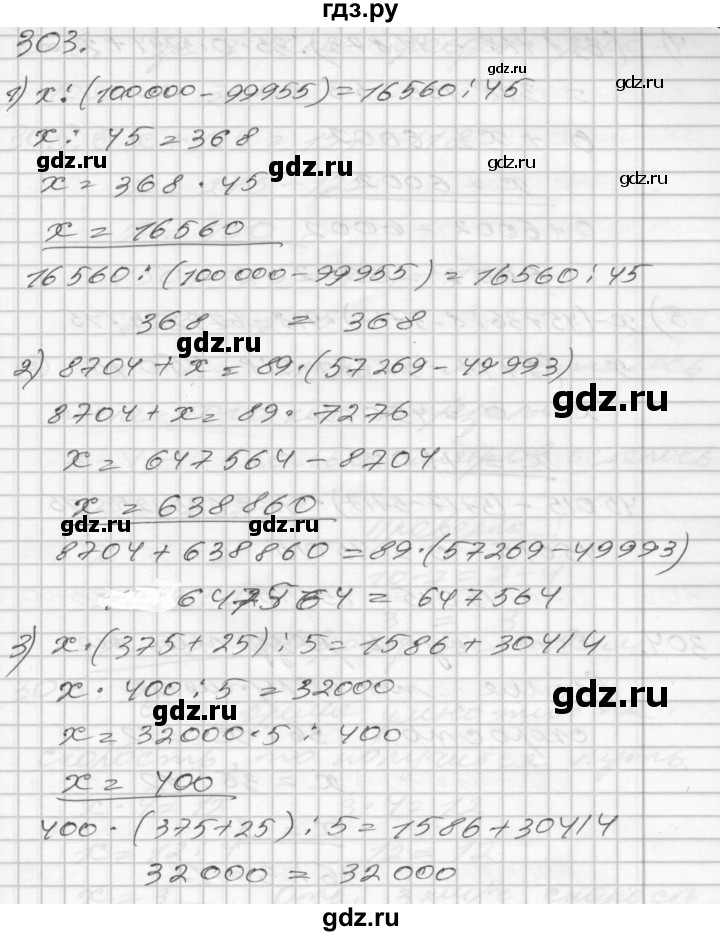 гдз.ру
303.
gdz.ru
1) x:(100000-99955)=16560:45
x: 45=368
gdz.ru gdz.ru gdz.ru
x=368·45
gdz.ru
x=16560
16560:(100000-99955)=16560:45
368 = 368
gdz.ru
2) 8704+x=89·(57269-49993)
gdz.ru
8704+x=89·7276
x=647564-8704
x=638860
gdz.ru gdz.ru
8704+638860=89·(57269-49993)
647564=647564
3) x·(375+25):5=1586+30414
x·400:5=32000
gdz.ru gdz.ru
x=32000·5:400
x=400
400·(375+25):5=1586+30414
32000=32000
gdz.ru